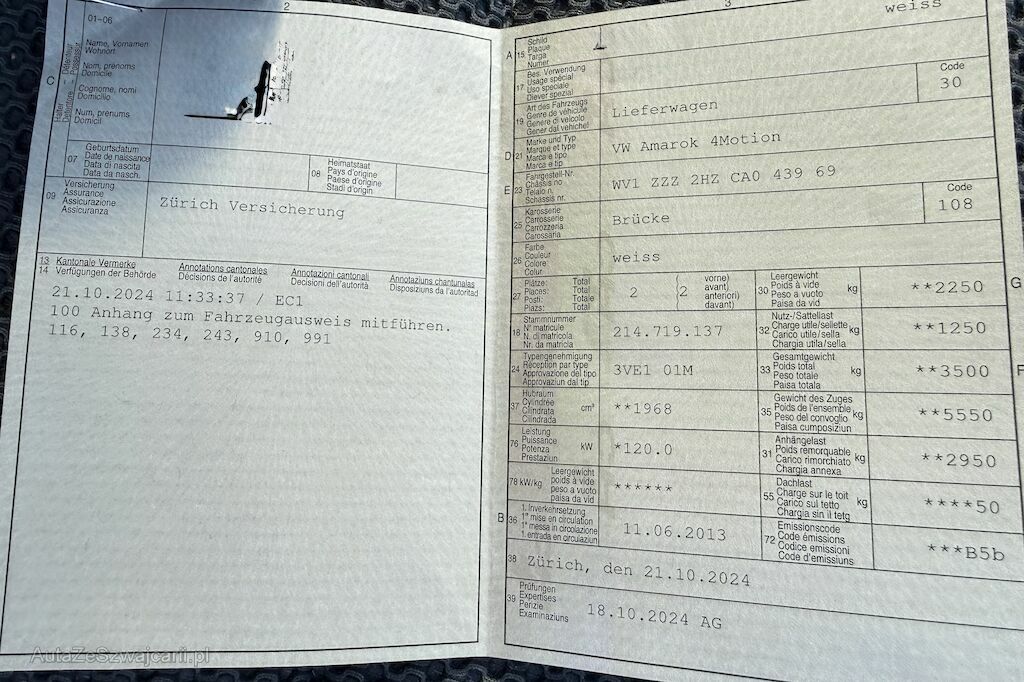 2
01-06
C
Halter
Détenteur
Detentore
Possessur
Name, Vornamen
Wohnort
Nom, prénoms
Domicile
Cognome, nomi
Domicilio
Num, prenums
Domicil
07
Geburtsdatum
Date de naissance
Data di nascita
Data da nasch.
08
Heimatstaat
Pays d'origine
Paese d'origine
Stadi d'origin
09
Versicherung
Assurance
Assicurazione
Assicuranza
Zürich Versicherung
13
14
Kantonale Vermerke
Verfügungen der Behörde
Annotations cantonales
Décisions de l'autorité
Annotazioni cantonali
Decisioni dell'autorità
Annotaziuns chantunalas
Disposiziuns da l'autoritad
21.10.2024 11:33:37 / EC1
100 Anhang zum Fahrzeugausweis mitführen.
116, 138, 234, 243, 910, 991
3
weiss
A
15
Schild
Plaque
Targa
Numer
17
Bes. Verwendung
Usage spécial
Uso speciale
Diever spezial
19
Art des Fahrzeugs
Genre de véhicule
Genere di veicolo
Gener dal vehichel
Lieferwagen
Code
30
D
21
Marke und Typ
Marque et type
Marca e tipo
Marca e tip
VW Amarok 4Motion
E
23
Fahrgestell-Nr.
Châssis no
Telaio n.
Schassis nr.
WV1 ZZZ 2HZ CA0 439 69
25
Karosserie
Carrosserie
Carrozzeria
Carossaria
Brücke
Code
108
26
Farbe
Couleur
Colore
Colur
weiss
27
Plätze: Total
Places: Total
Posti: Totale
Plazs: Total
2
(2
vorne)
avant)
anteriori)
davant)
30
Leergewicht
Poids à vide
Peso a vuoto
Paisa da vid
kg
**2250
G
18
Stammnummer
N° matricule
N. di matricola
Nr. da matricla
214.719.137
32
Nutz-/Sattellast
Charge utile/sellette
Carico utile/sella
Chargia utila/sella
kg
**1250
24
Typengenehmigung
Réception par type
Approvazione del tipo
Approvaziun dal tip
3VE1 01M
33
Gesamtgewicht
Poids total
Peso totale
Paisa totala
kg
**3500
F
37
Hubraum
Cylindrée
Cilindrata
Cilindrada
cm³
**1968
35
Gewicht des Zuges
Poids de l'ensemble
Peso del convoglio
Paisa cumposiziun
kg
**5550
76
Leistung
Puissance
Potenza
Prestaziun
kW
*120.0
31
Anhängelast
Poids remorquable
Carico rimorchiato
Chargia annexa
kg
**2950
78 kW/kg
Leergewicht
poids à vide
peso a vuoto
paisa da vid
******
55
Dachlast
Charge sur le toit
Carico sul tetto
Chargia sin il tetg
kg
****50
B
36
1. Inverkehrsetzung
1re mise en circulation
1a messa in circolazione
1. entrada en circulaziun
11.06.2013
72
Emissionscode
Code émissions
Codice emissioni
Code d'emissiuns
***B5b
38
Zürich, den 21.10.2024
39
Prüfungen
Expertises
Perizie
Examinaziuns
18.10.2024 AG
AutaZeSzwajcarii.pl